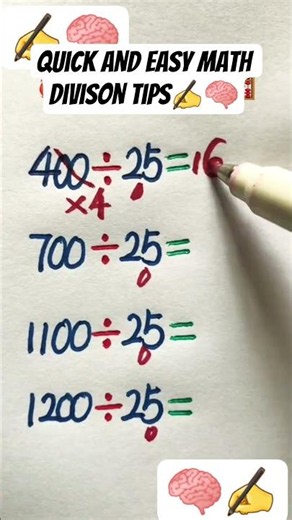 QUICK AND EASY MATH
DIVISON TIPS✍️🧠
400÷25=16
×4
700÷25=
1100÷25=
1200÷25=